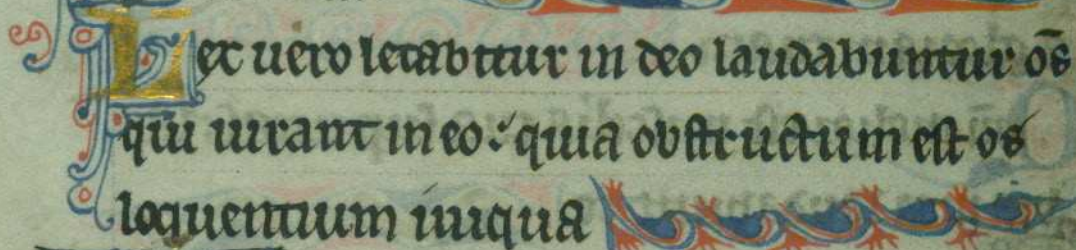 Lex uero letabitur in deo laudabuntur ōs
qui iurant in eo: quia obstructum est os
loquentium iniqua